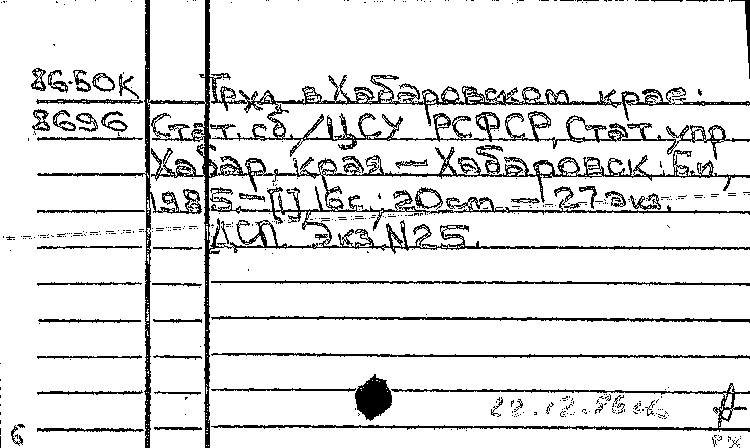 86-50К Труд в Хабаровском крае:
8696 Стат. сб. / ЦСУ РСФСР, Стат. упр
Хабар. края — Хабаровск : Б.и.,
1985.— [1], 16с.; 20 cm. — 127 экз.
ДСП. Экз. N 25.
22.12.86
6